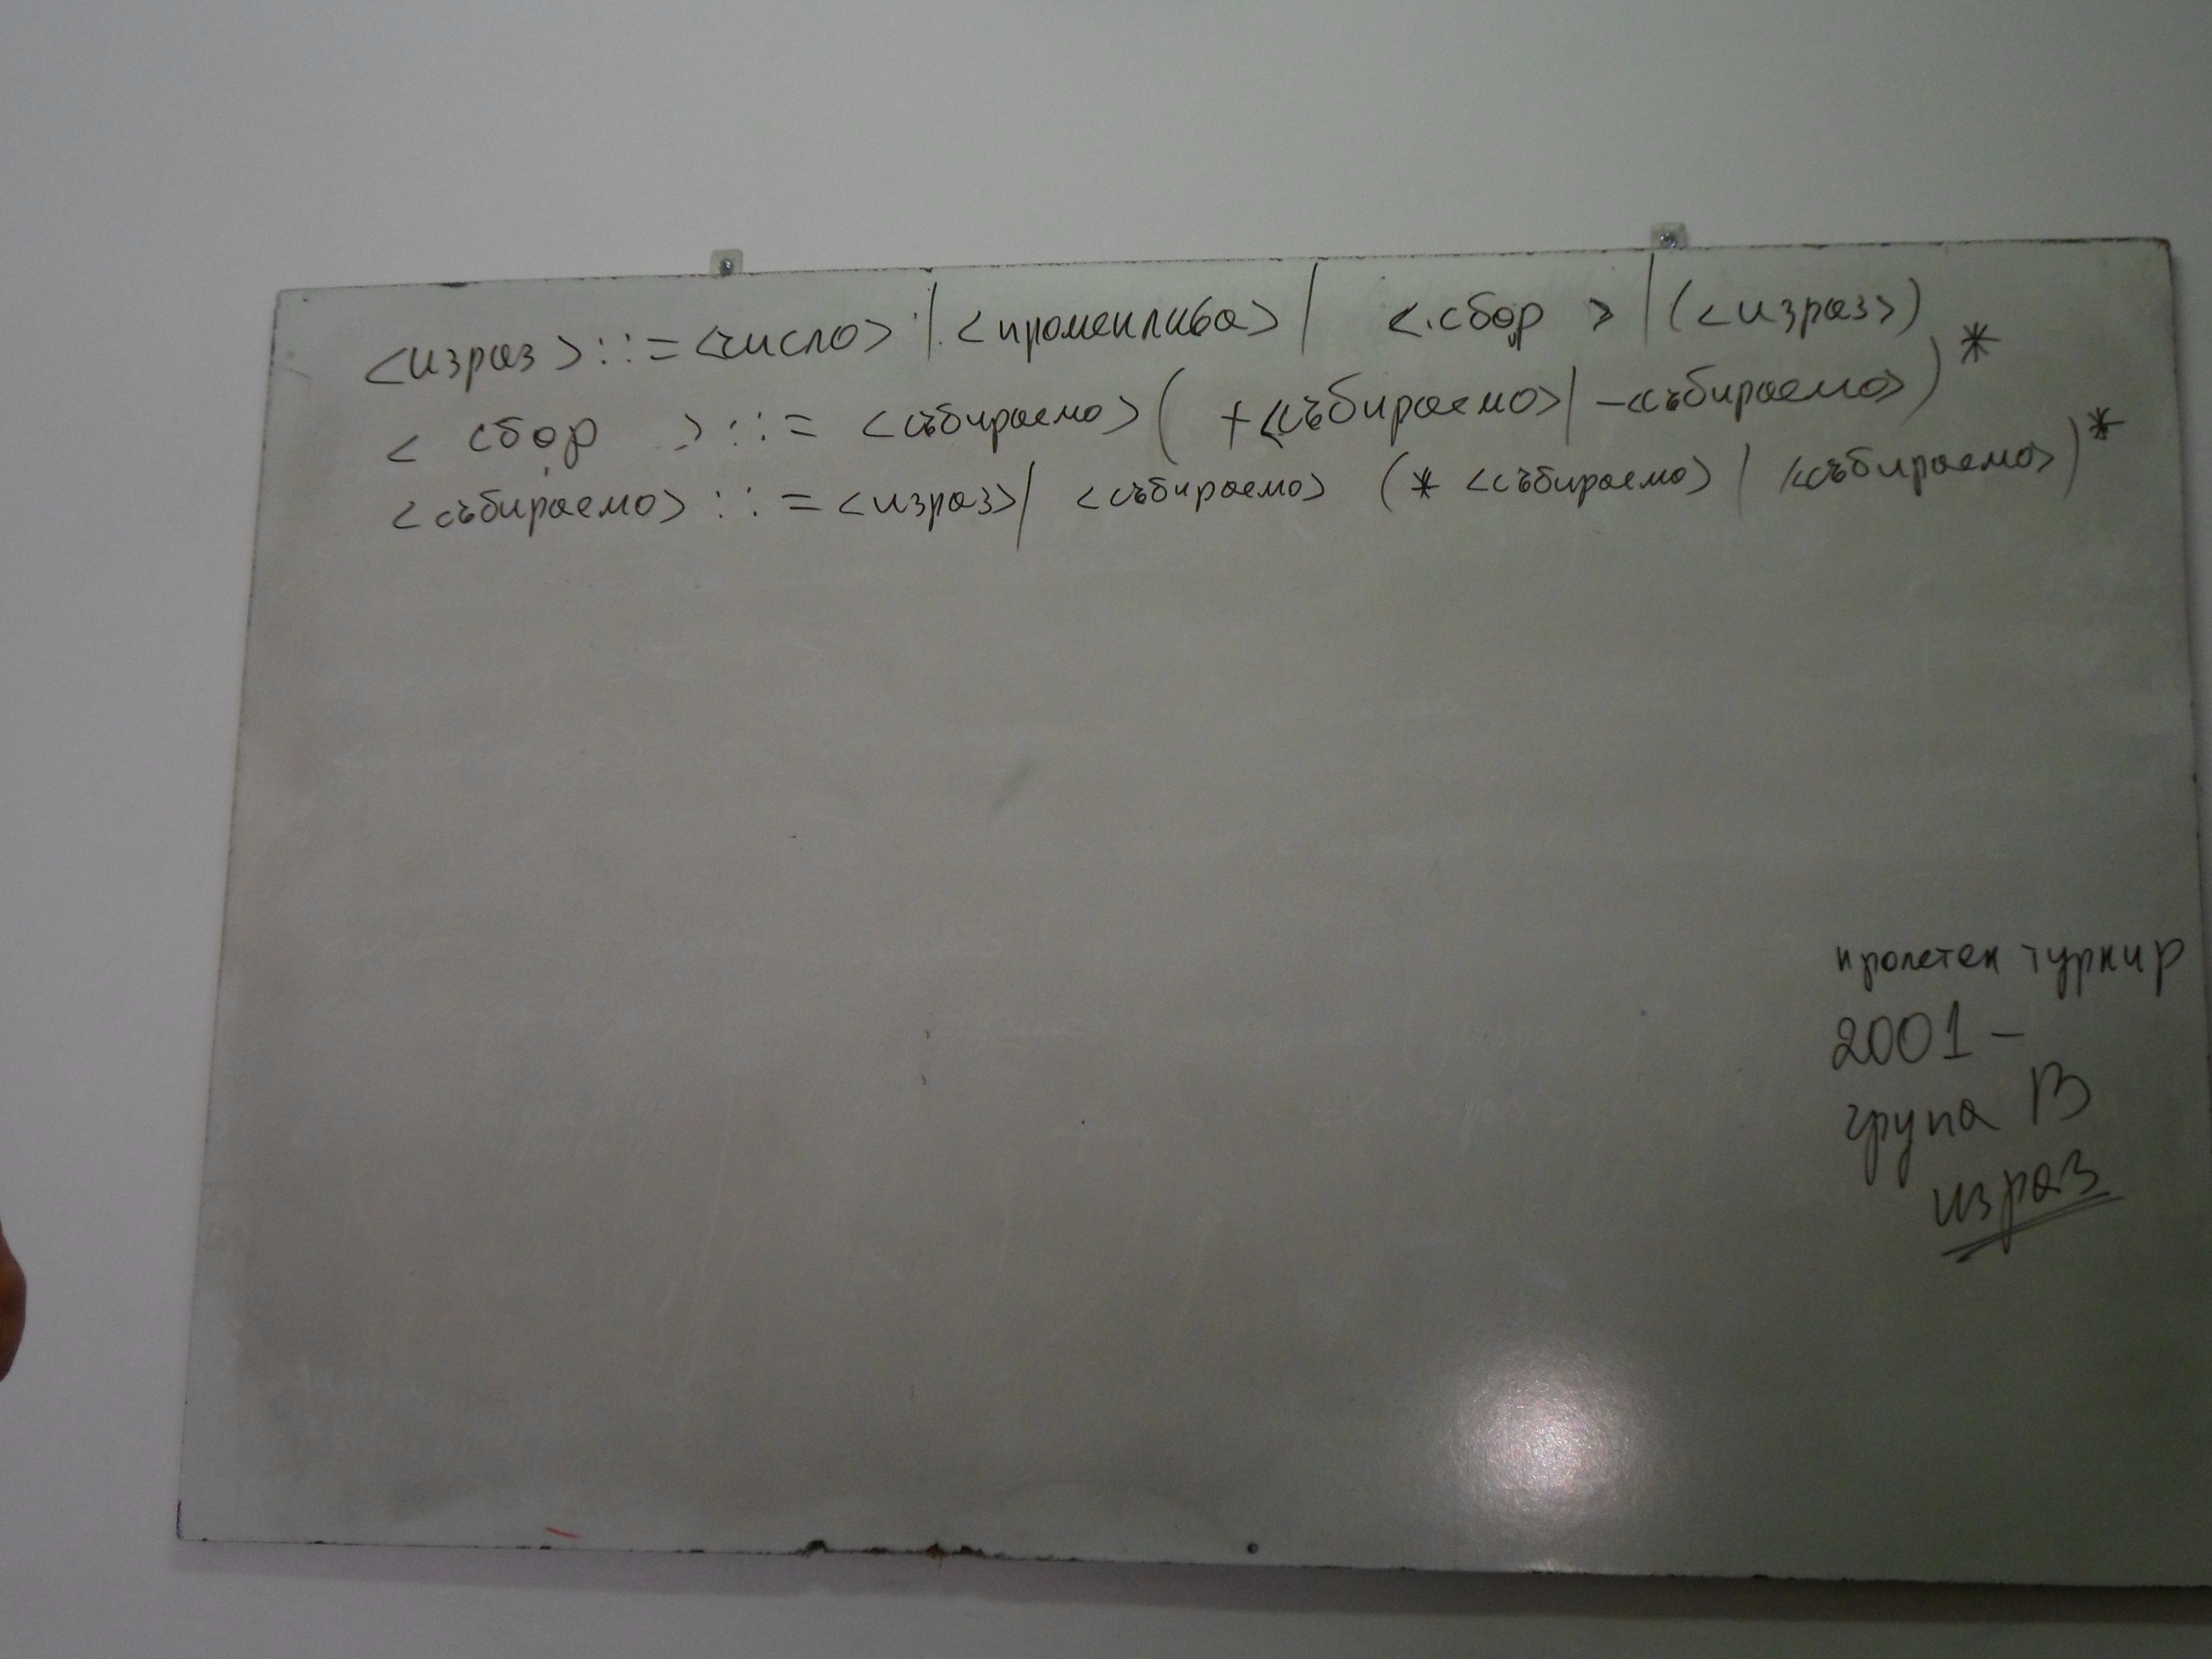 <израз>::=<число>|<променлива>| <сбор >|(<израз>)
< сбор >::= <събираемо>( +<събираемо>|-<събираемо>)*
<събираемо>::=<израз>| <събираемо> (* <събираемо> | /<събираемо>)*
пролетен турнир
2001 -
група B
израз